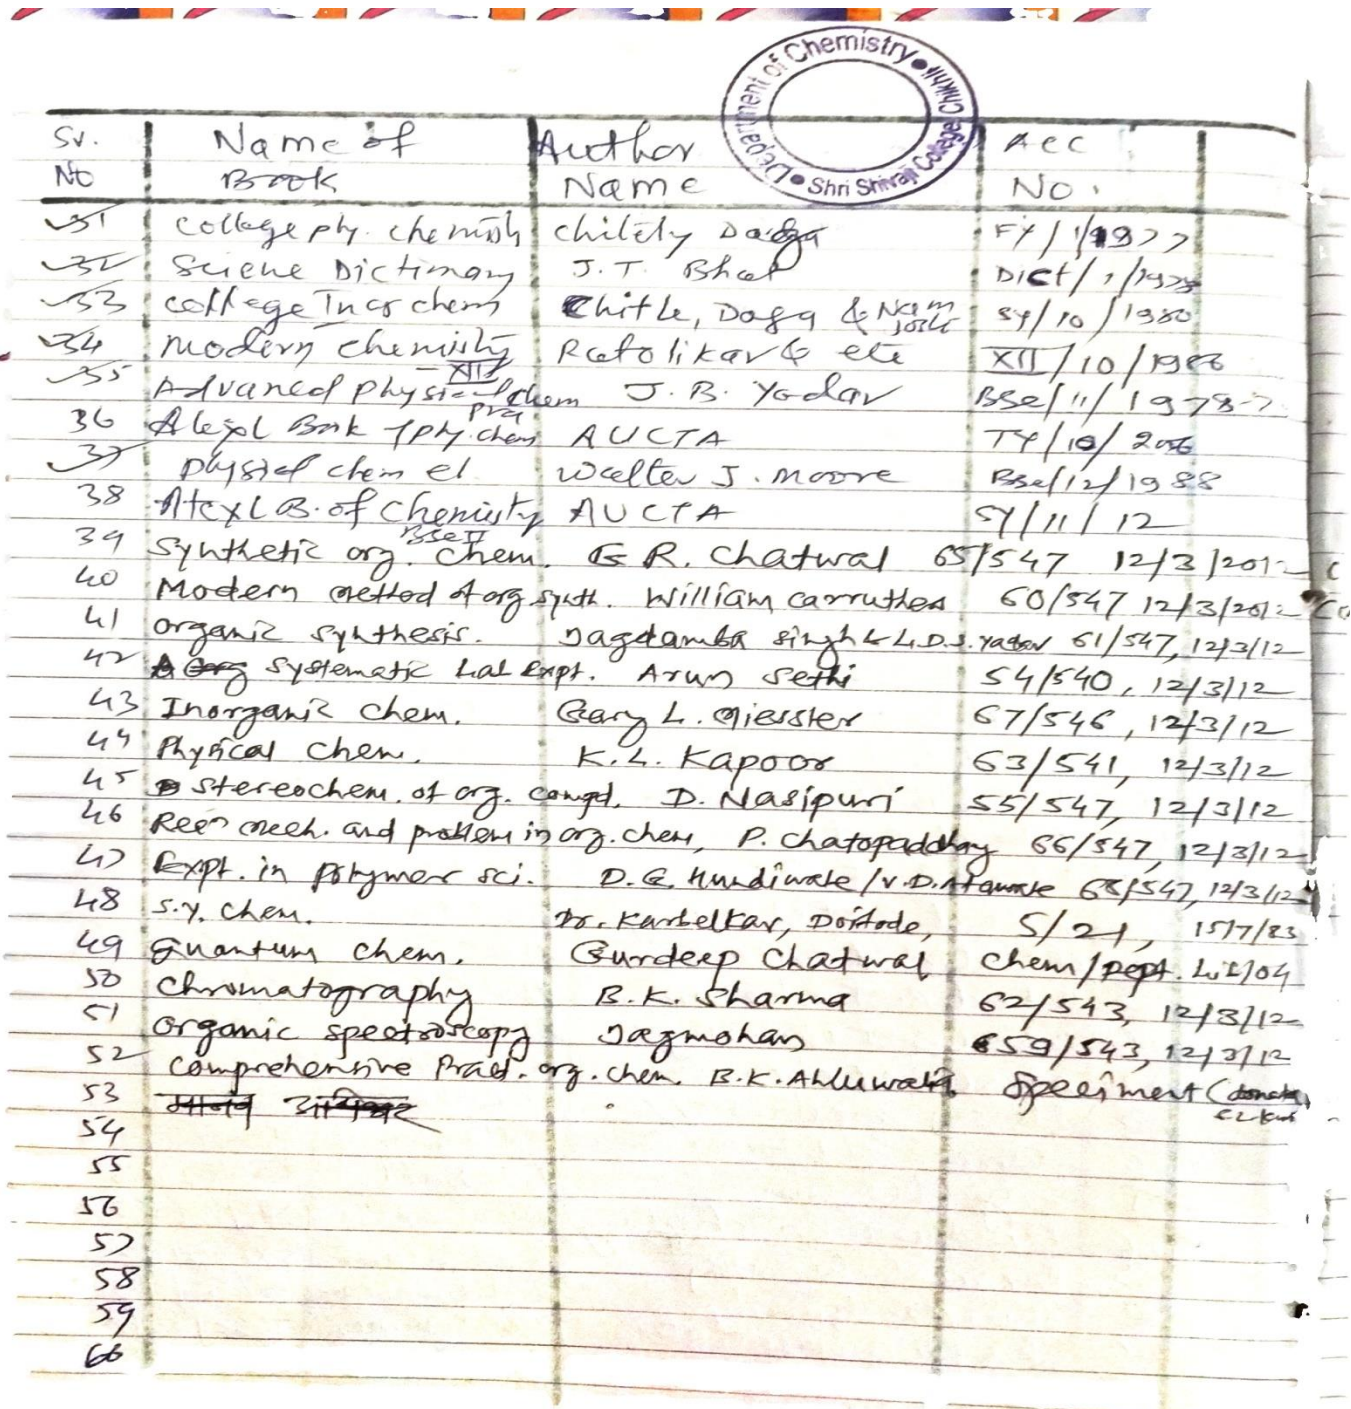 Department of Chemistry
Shri Shivaji College Chikhli
Sr. No | Name of Book | Author Name | Acc No.
31 College phy. chemistry Chitely Daga FY/1/1977
32 Sciene Dictionary J.T. Bhat Dict/1/1978
33 College Inor chem Chitle, Daga & Nam Joshi SY/10/1980
34 Modern chemistry XII Ratolikar & etc XII/10/1986
35 Advanced physical chem pra J.B. Yadav BSc/11/1978-7
36 A text Book f phy. chem AUCTA TY/10/2006
37 physical chem el Walter J. Moore BSc/12/1988
38 A text B. of Chemistry BSc II AUCTA SY/11/12
39 Synthetic org. Chem. G R. Chatwal 65/547 12/3/2012
40 Modern method of org synth. William carruthers 60/547 12/3/2012
41 organic synthesis. Jagdamba singh & L.D.S. Yadav 61/547, 12/3/12
42 Systematic Lab Expt. Arun Sethi 54/540, 12/3/12
43 Inorganic Chem. Gary L. Miessler 67/546, 12/3/12
44 Physical Chem. K.L. Kapoor 63/541, 12/3/12
45 Stereochem. of org. compd. D. Nasipuri 55/547, 12/3/12
46 Reen mech. and problem in org. chem, P. Chatopaddhay 66/547, 12/3/12
47 Expt. in polymer sci. D.G. Hundiwale / V.D. Atawale 68/547, 12/3/12
48 S.Y. Chem. Dr. Karbelkar, Doifode, 5/21, 15/7/83
49 Quantum Chem. Gurdeep Chatwal Chem/Dept. Lib/04
50 Chromatography B.K. Sharma 62/543, 12/3/12
51 Organic spectroscopy Jagmohan 59/543, 12/3/12
52 Comprehensive Pract. org. chem. B.K. Ahluwalia Speciment
53
54
55
56
57
58
59
60